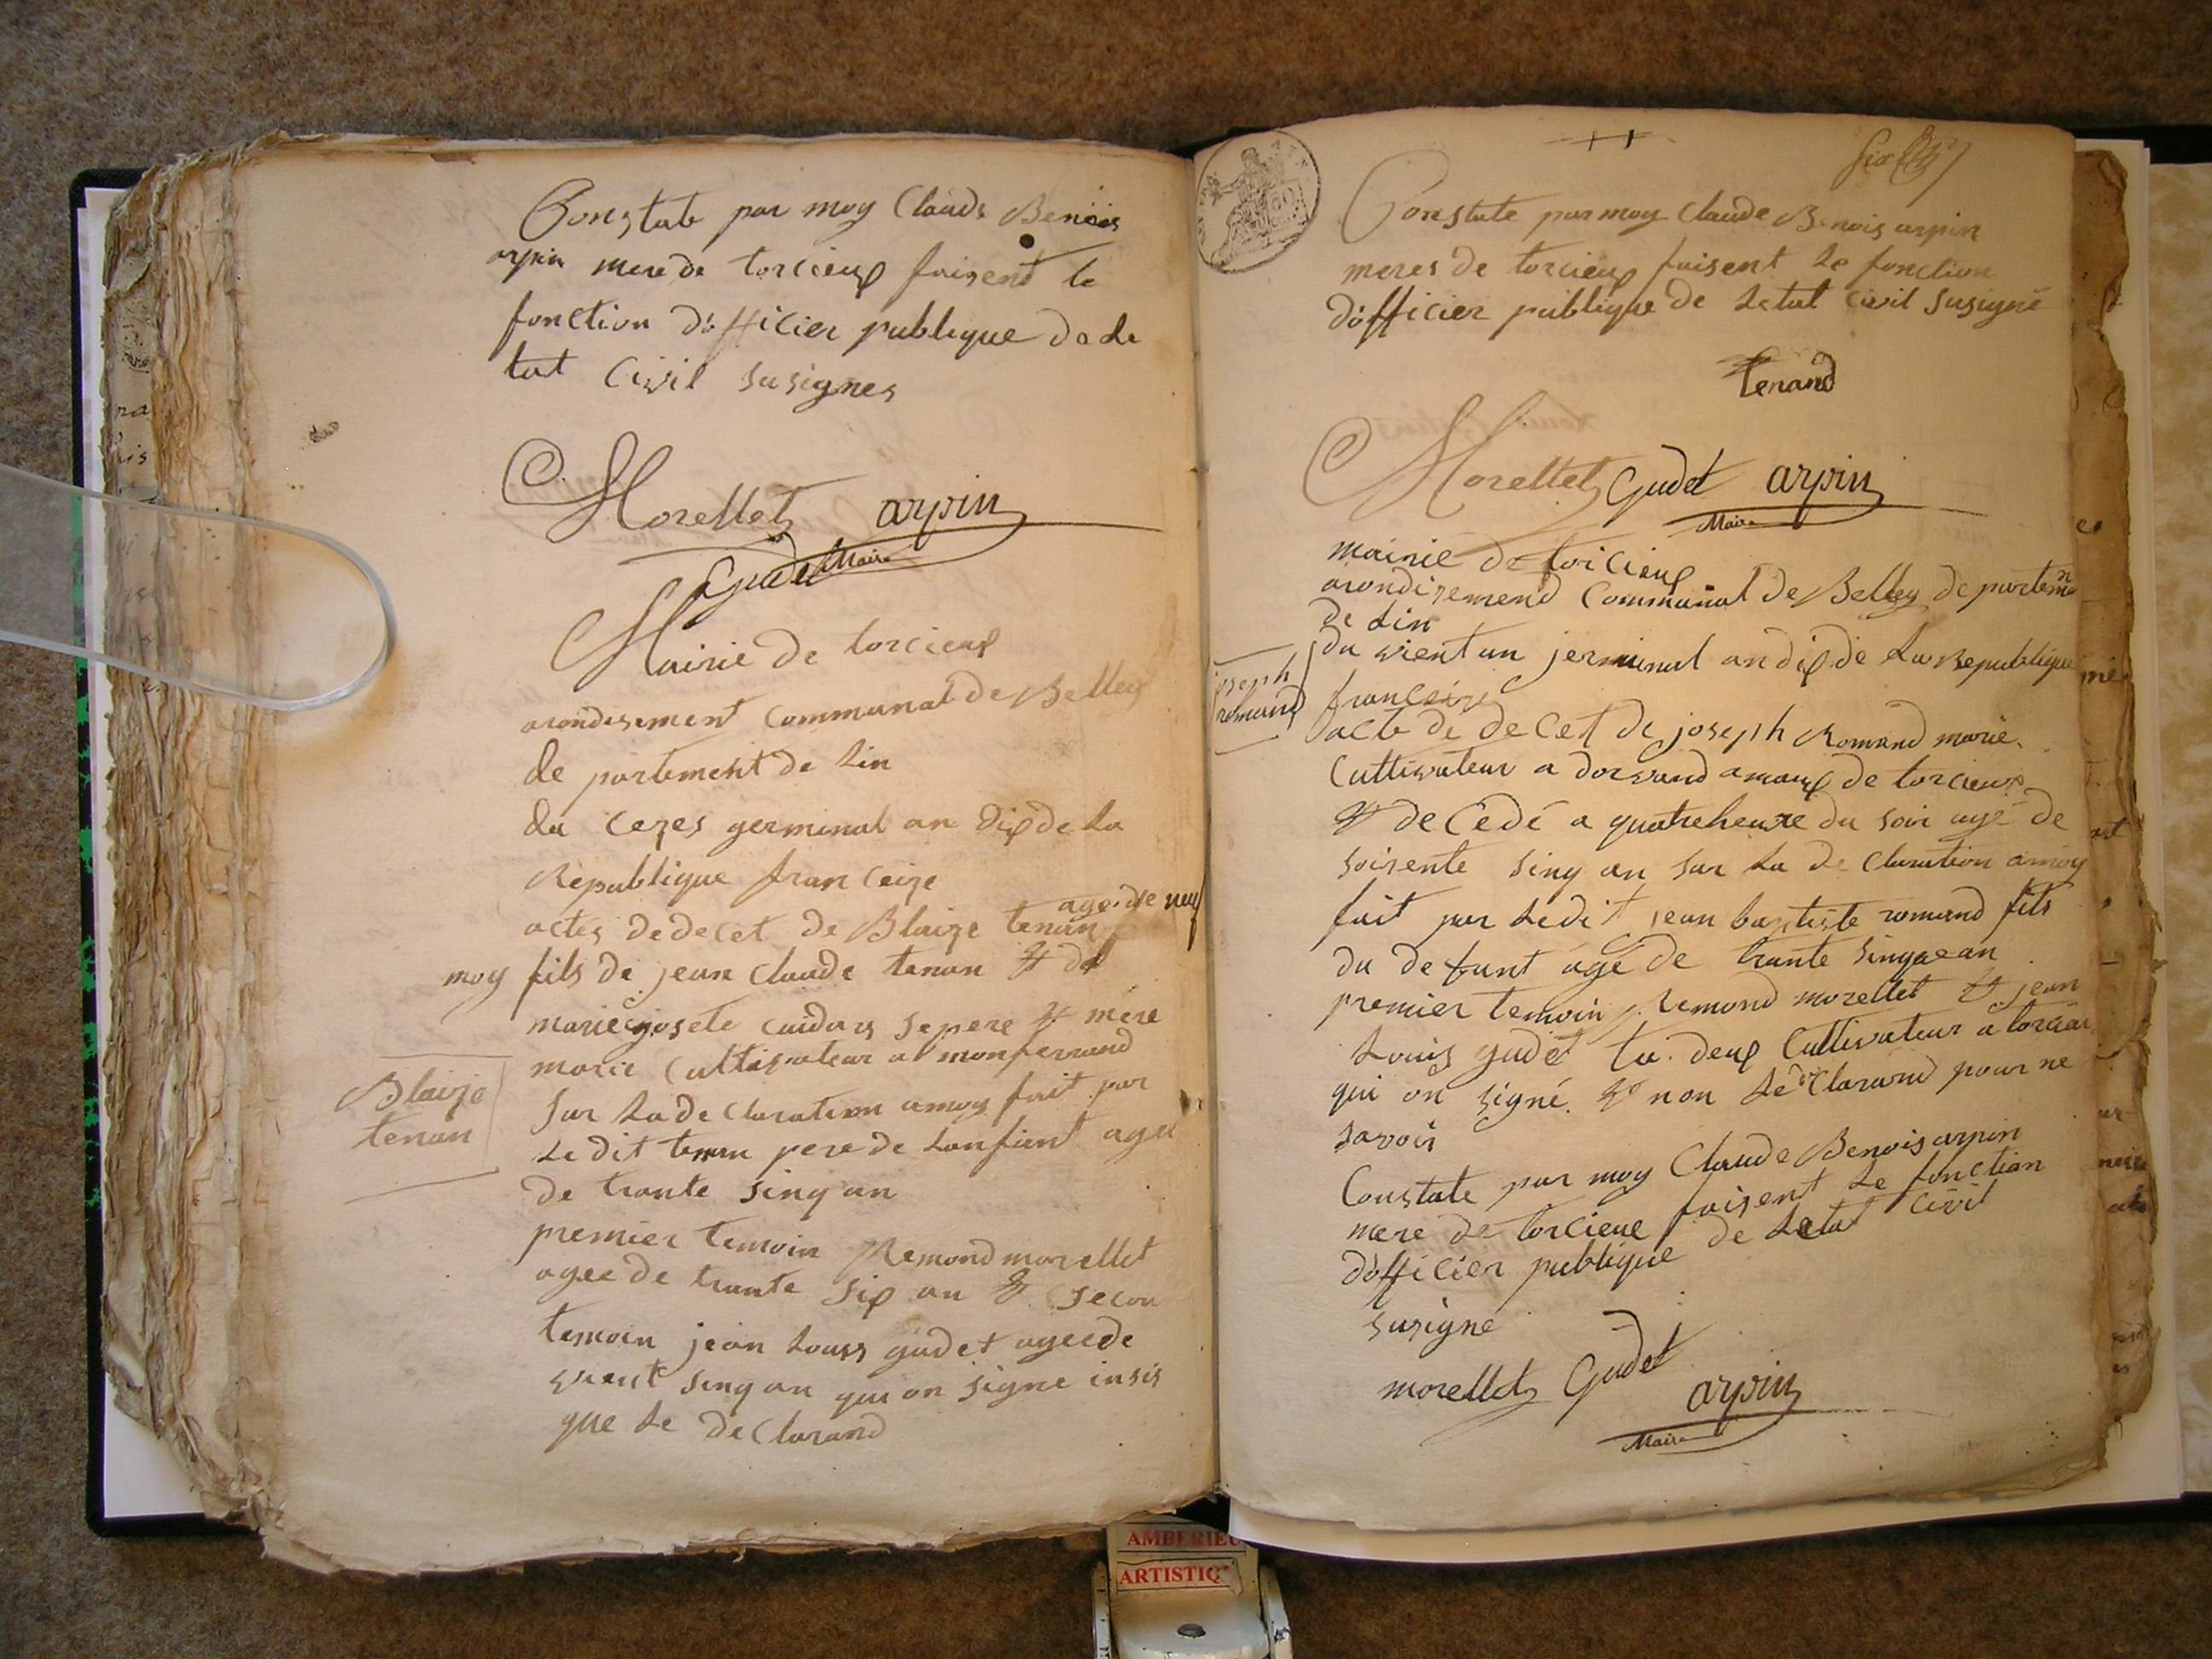 Constate par moy Claude Benois
arpin mere de torcieux faisent le
fonction d'officier publique de Le
tat Civil susignes
Morellet arpin
Gudet Maire
Mairie de torcieux
arondisement Communal de Belley
de partement de Lin
du cezes germinal an dix de La
Republique franceize
actes de decet de Blaize tenan age de neuf
moy fils de jean Claude tenan et de
marie josete cuidars se pere et mere
marie Cultivateur a monferrand
Sur La de Claration amoy fait par
Le dit tenan pere de Lanfant agee
de trante sinq an
Blaize
tenan
premier temoin Remond morellet
agee de trante six an et secon
temoin jean Louis gudet agee de
vient sinq an qui on signe insis
que Le de Clarand
Constate par moy Claude Benois arpin
meres de torcieux faisent Le fonction
d'officier publique de Letat Civil susigné
tenand
Morellet Gudet arpin
Maire
mairie de torcieux
arondisemend Communal de Belley de partem
de Lin
du vient un jerminal an dix de La Republique
franceize
joseph
romand
acte de de Cet de joseph Romand marié
Cultivateur a dorvand amaux de torcieux
et de Cedé a quatre heure du soir agé de
soisente sinq an sur La de Claration amoy
fait par Ledit jean baptiste romand fils
du defunt agé de trante sinq an
premier temoin Remond morellet et jean
Louis gudet tu deux Cultivateur a torcieu
qui on signé et non Le de Clarand pour ne
savoir
Constate par moy Claude Benois arpin
mere de torcieue faisent Le fonction
d'officier publique de Letat Civil
susigne
morellet Gudet
arpin
Maire
AMBERIEU
ARTISTIQ